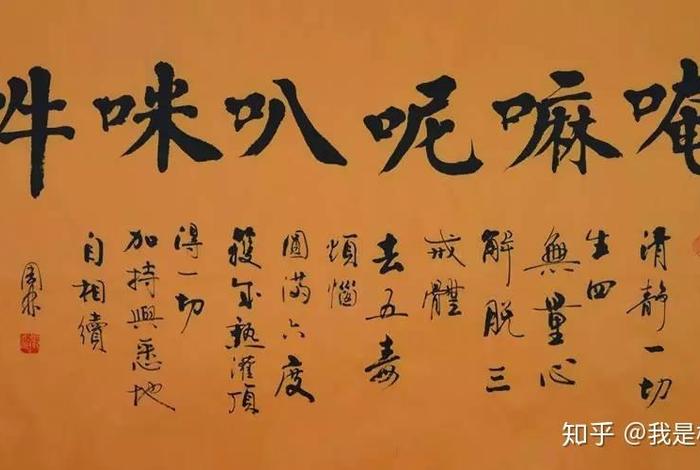 唵嘛呢叭咪吽
清靜一切
生四
無量心
解脫三
戒體
去五毒
煩惱
圓滿六度
獲成熟灌頂
得一切
加持與悉地
自相續
知乎 @我是